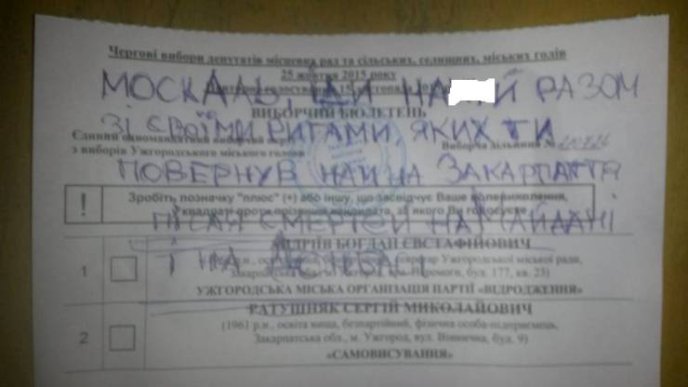 Чергові вибори депутатів місцевих рад та сільських, селищних, міських голів
25 жовтня 2015 року
МОСКАЛЬ, ІДИ НА Й РАЗОМ
ВИБОРЧИЙ БЮЛЕТЕНЬ
ЗІ СВОЇМИ РИГАМИ, ЯКИХ ТИ
Єдиний одномандатний виборчий
з виборів Ужгородського міського голови
Виборча дільниця №
ПОВЕРНУВ НАМ НА ЗАКАРПАТТЯ
! Зробіть позначку "плюс" (+) або іншу, що засвідчує Ваше волевиявлення,
у квадраті проти прізвища кандидата, за якого Ви голосуєте
ПІСЛЯ СМЕРТЕЙ НА МАЙДАНІ
І НА
1 АНДРІЇВ БОГДАН ЄВСТАФІЙОВИЧ
Ужгородської міської ради,
буд. 177, кв. 25)
УЖГОРОДСЬКА МІСЬКА ОРГАНІЗАЦІЯ ПАРТІЇ «ВІДРОДЖЕННЯ»
2 РАТУШНЯК СЕРГІЙ МИКОЛАЙОВИЧ
(1961 р.н., освіта вища, безпартійний, фізична особа-підприємець,
Закарпатська обл., м. Ужгород, вул. буд. 9)
«САМОВИСУВАННЯ»